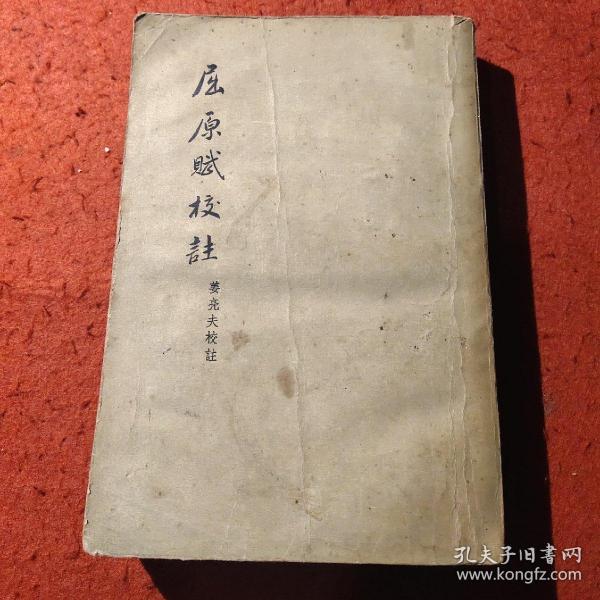 屈原賦校註
姜亮夫校註
孔夫子旧書网
www.kongfz.com